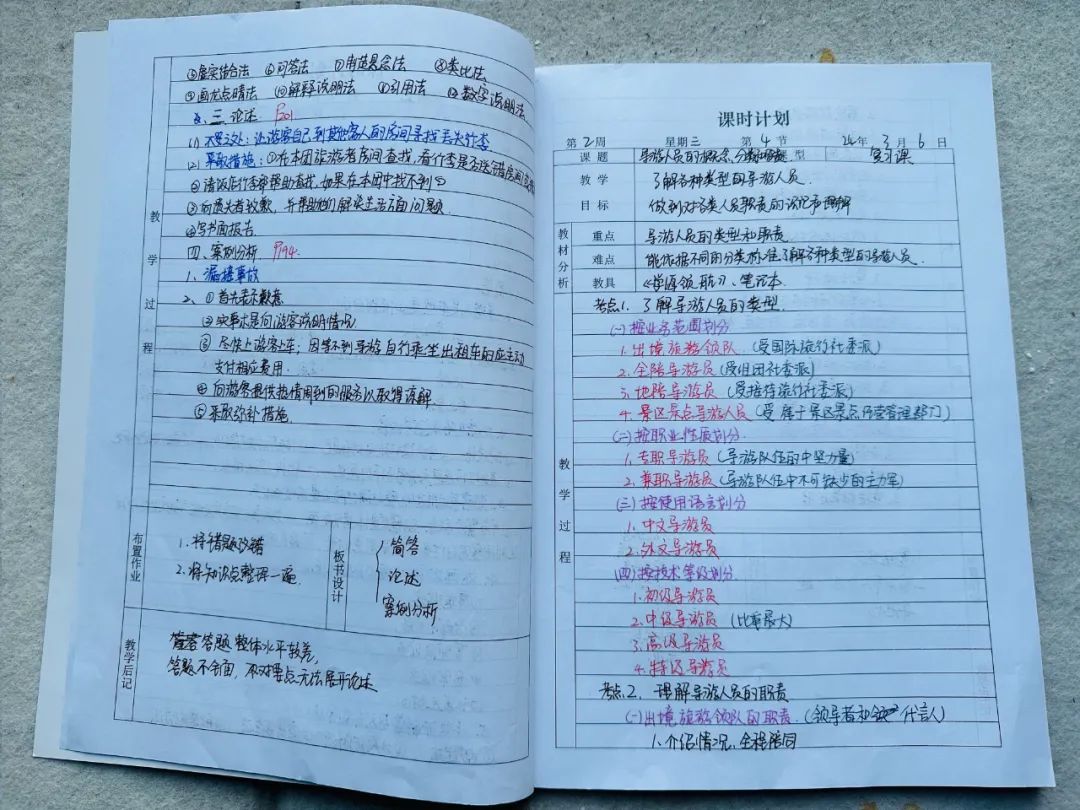 ⑤虚实结合法 ⑥问答法 ⑦制造悬念法 ⑧类比法
⑨画龙点睛法 ⑩解释说明法 ⑪引用法 ⑫数字说明法
三、论述 P201
(1) 不妥之处：让游客自己到其他客人的房间寻找丢失行李
(2) 采取措施：①在本团旅游者房间查找，看行李是否送错房间
②请饭店行李部帮助查找，如果在本团中找不到
③向遗失者致歉，并帮助他们解决生活方面问题
④写书面报告
四、案例分析 P194
1、漏接事故
2、①首先表示歉意
②实事求是向游客说明情况
③尽快上游客上车；因等不到导游自行乘坐出租车的应主动
支付相应费用
④向游客提供热情周到的服务以取得谅解
⑤采取弥补措施
教学过程
布置作业
1.将错题改错
2.将知识点整理一遍
板书设计
简答
论述
案例分析
教学后记
简答答题整体水平较差，
答题不全面，不对 点无法展开论述
课时计划
第2周 星期三 第4节 24年3月6日
课题 导游人员的概念、分类 型 复习课
教学 了解各种类型的导游人员.
目标 做到对各类人员职责的识记和理解
教材分析
重点 导游人员的类型和职责
难点 能依据不同的分类标准了解各种类型的导游人员
教具 《 领航》、笔记本
教学过程
考点1. 了解导游人员的类型
(一)按业务范围划分
1.出境旅游领队 (受国际旅行社委派)
2.全陪导游员 (受组团社委派)
3.地陪导游员 (受接待旅行社委派)
4.景区景点导游人员 (受属于景区景点 管理部门)
(二)按职业性质划分
1.专职导游员 (导游队伍的中坚力量)
2.兼职导游员 (导游队伍中不可缺少的主力军)
(三)按使用语言划分
1.中文导游员
2.外文导游员
(四)按技术等级划分
1.初级导游员
2.中级导游员 (比重最大)
3.高级导游员
4.特级导游员
考点2. 理解导游人员的职责
(一)出境旅游领队的职责 (领导者和 代言人)
1.介绍情况、全程陪同